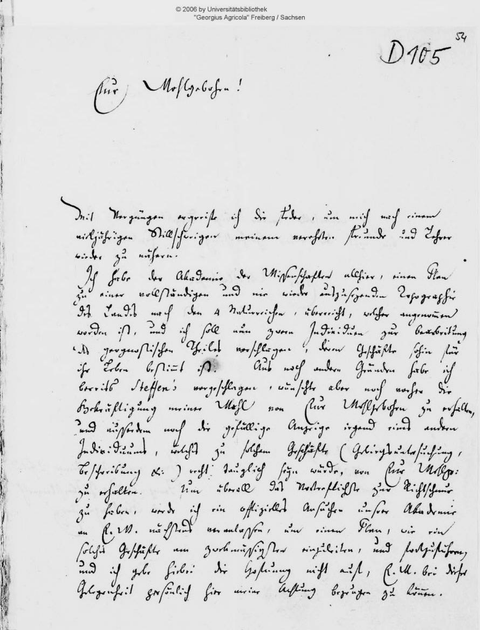 © 2006 by Universitätsbibliothek
"Georgius Agricola" Freiberg / Sachsen
54
D105
Eur Wohlgebohren!
Mit Vergnügen ergreife ich die Feder, um mich nach einem
vieljährigen Stillschweigen meinem verehrten Freunde und Lehrer
wieder zu nähern.
Ich habe der Akademie der Wissenschaften allhier, einen Plan
zu einer vollständigen und nie wieder Topographie
des Landes nach den 4 Naturreichen, überreicht, welcher angenommen
worden ist, und ich soll nun zween Individuen zur Bearbeitung
des geognostischen Theiles vorschlagen, deren Geschäfte schon für
ihr Leben bestimmt ist. Aus noch andern Gründen habe ich
bereits Steffens vorgeschlagen, wünschte aber noch vorher die
Bekräftigung meiner Wahl von Eur Wohlgebohren zu erhalten,
und ausserdem noch die gefällige Anzeige irgend eines andern
Individuums, welches zu solchem Geschäfte (Gebirgsuntersuchung,
Beschreibung &c:) recht tauglich seyn würde, von Eur Wohlg:
zu erhalten. Um überall das zur Richtschnur
zu haben, werde ich ein offizielles Ansuchen unsrer Akademie
an E. W. nächstens veranlassen, um einen Plan, wie ein
solches Geschäfte am zweckmässigsten einzuleiten, und fortzuführen
und ich gebe hiebei die Hofnung nicht auf, E. W. bei dieser
Gelegenheit persönlich hier meine Achtung bezeugen zu können.